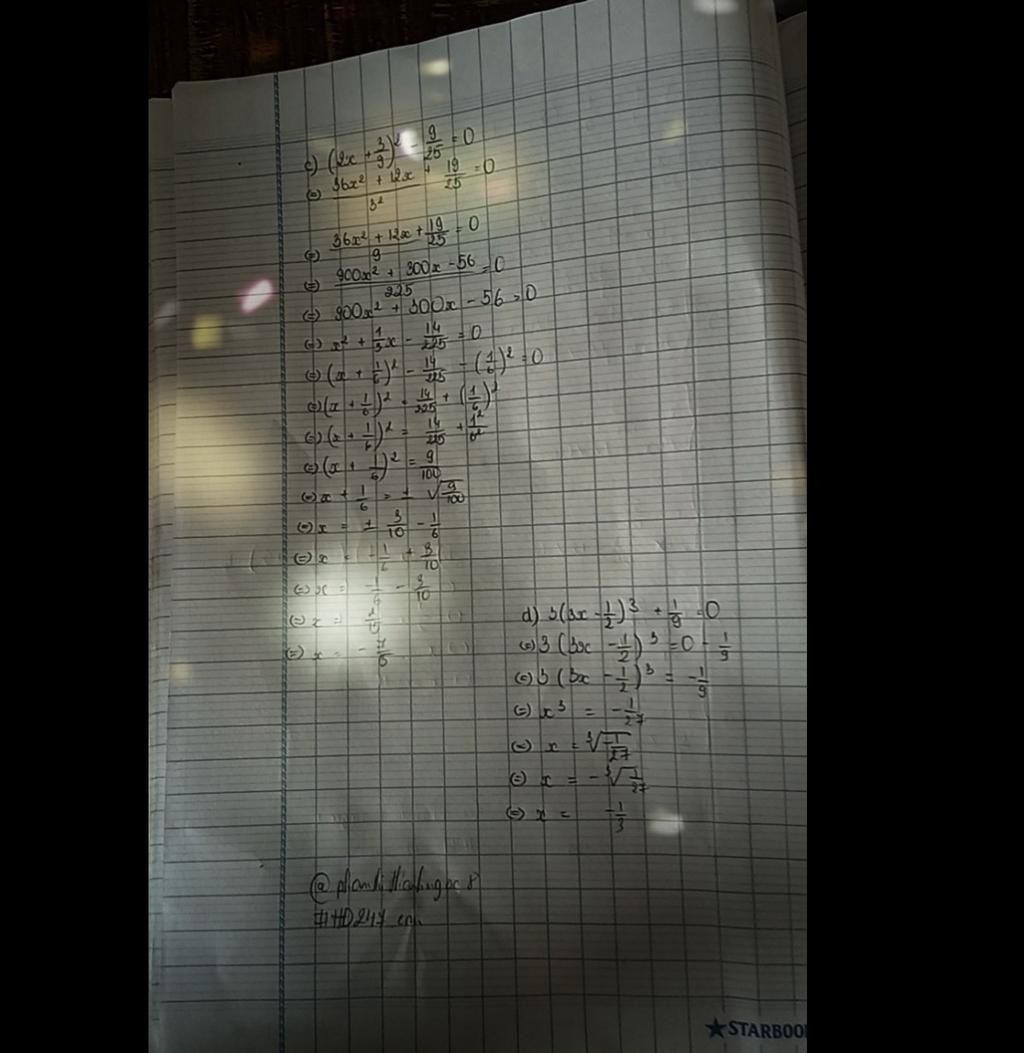 c) (2x + 3/9)² - 9/25 = 0
(=) 36x² + 12x / 3² + 19/25 = 0
(=) 36x² + 12x / 9 + 19/25 = 0
(=) 900x² + 300x - 56 / 225 = 0
(=) 900x² + 300x - 56 = 0
(=) x² + 1/3x - 14/225 = 0
(=) (x + 1/6)² - 14/225 - (1/6)² = 0
(=) (x + 1/6)² = 14/225 + (1/6)²
(=) (x + 1/6)² = 14/225 + 1²/6²
(=) (x + 1/6)² = 9/100
(=) x + 1/6 = ± √9/100
(=) x = ± 3/10 - 1/6
(=) x = -1/6 + 3/10
(=) x = -1/6 - 3/10
(=) x =
(=) x = -
d) 3(3x - 1/2)³ + 1/9 = 0
(=) 3(3x - 1/2)³ = 0 - 1/9
(=) 3(3x - 1/2)³ = -1/9
(=) x³ = -1/27
(=) x = ³√-1/27
(=) x = -³√1/27
(=) x = -1/3
#HD247
★STARBOO